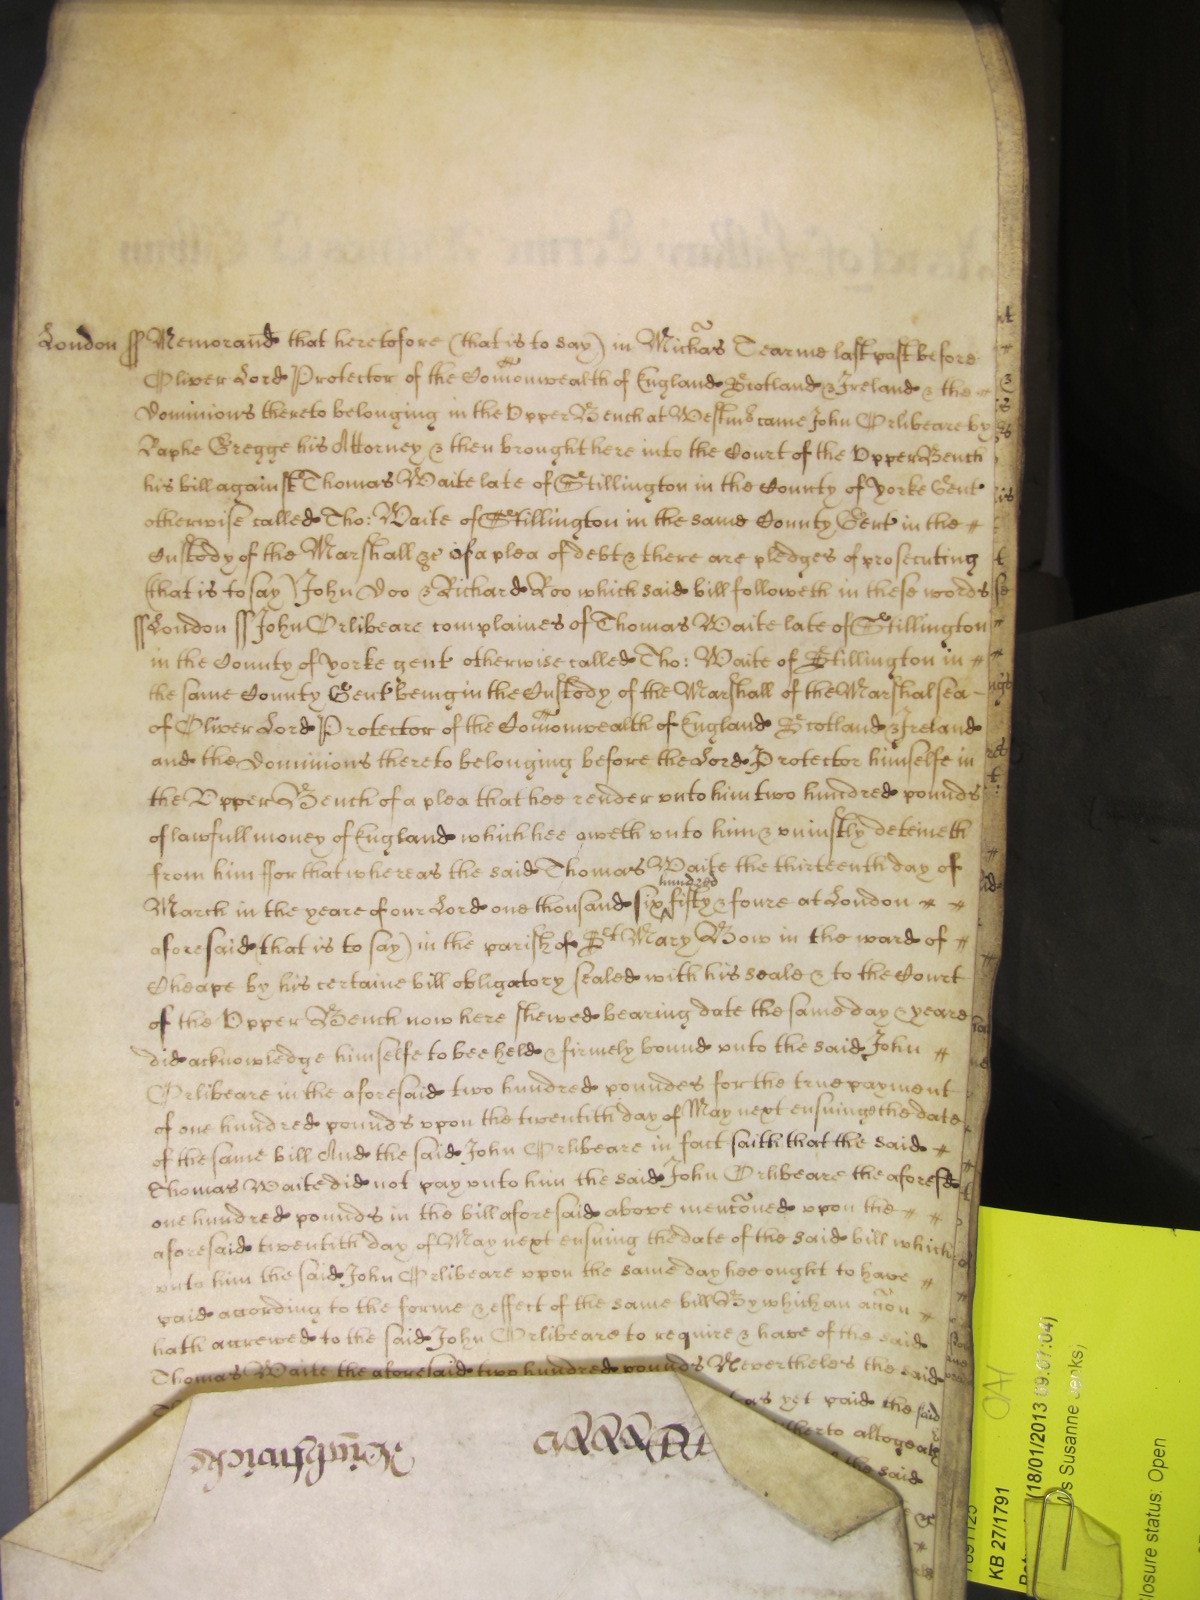 London ss Memorand that heretofore (that is to say) in Michas Tearme last past before
Oliver Lord Protector of the Comonwealth of England Scotland & Ireland & the
Dominions thereto belonging in the Upper Bench at Westm came John Orlibeare by
Raphe Gregge his Attorney & then brought here into the Court of the Upper Bench
his bill against Thomas Waite late of Stillington in the County of Yorke Gent
otherwise called Tho: Waite of Stillington in the same County Gent in the
Custody of the Marshall &c of a plea of debt & there are pledges of prosecuting
(that is to say) John Doo & Richard Roo which said bill followeth in these words
ss London ss John Orlibeare complaines of Thomas Waite late of Stillington
in the County of Yorke gent otherwise called Tho: Waite of Stillington in
the same County Gent being in the Custody of the Marshall of the Marshalsea
of Oliver Lord Protector of the Comonwealth of England Scotland & Ireland
and the Dominions thereto belonging before the Lord Protector himselfe in
the Upper Bench of a plea that hee render unto him two hundred pounds
of lawfull money of England which hee oweth unto him & uniustly deteineth
from him ffor that whereas the said Thomas Waite the thirteenth day of
March in the yeare of our Lord one thousand six hundred fifty & foure at London
aforesaid (that is to say) in the parish of Sct Mary Bow in the ward of
Cheape by his certaine bill obligatory sealed with his seale & to the Court
of the Upper Bench now here shewed bearing date the same day & yeare
did acknowledge himselfe to bee held & firmely bound unto the said John
Orlibeare in the aforesaid two hundred poundes for the true payment
of one hundred pounds upon the twentith day of May next ensuinge the date
of the same bill And the said John Orlibeare in fact saith that the said
Thomas Waite did not pay unto him the said John Orlibeare the aforesd
one hundred pounds in the bill aforesaid above menconed upon the
aforesaid twentith day of May next ensuing the date of the said bill which
unto him the said John Orlibeare upon the same day hee ought to have
paid according to the forme & effect of the same bill By which an accon
hath accrewed to the said John Orlibeare to require & have of the said
Thomas Waite the aforesaid two hundred pounds Neverthelos the said
as yet paid the said
altogeather
the said
KB 27/1791
(18/01/2013 09:01:04)
Susanne Jenks;
closure status: Open